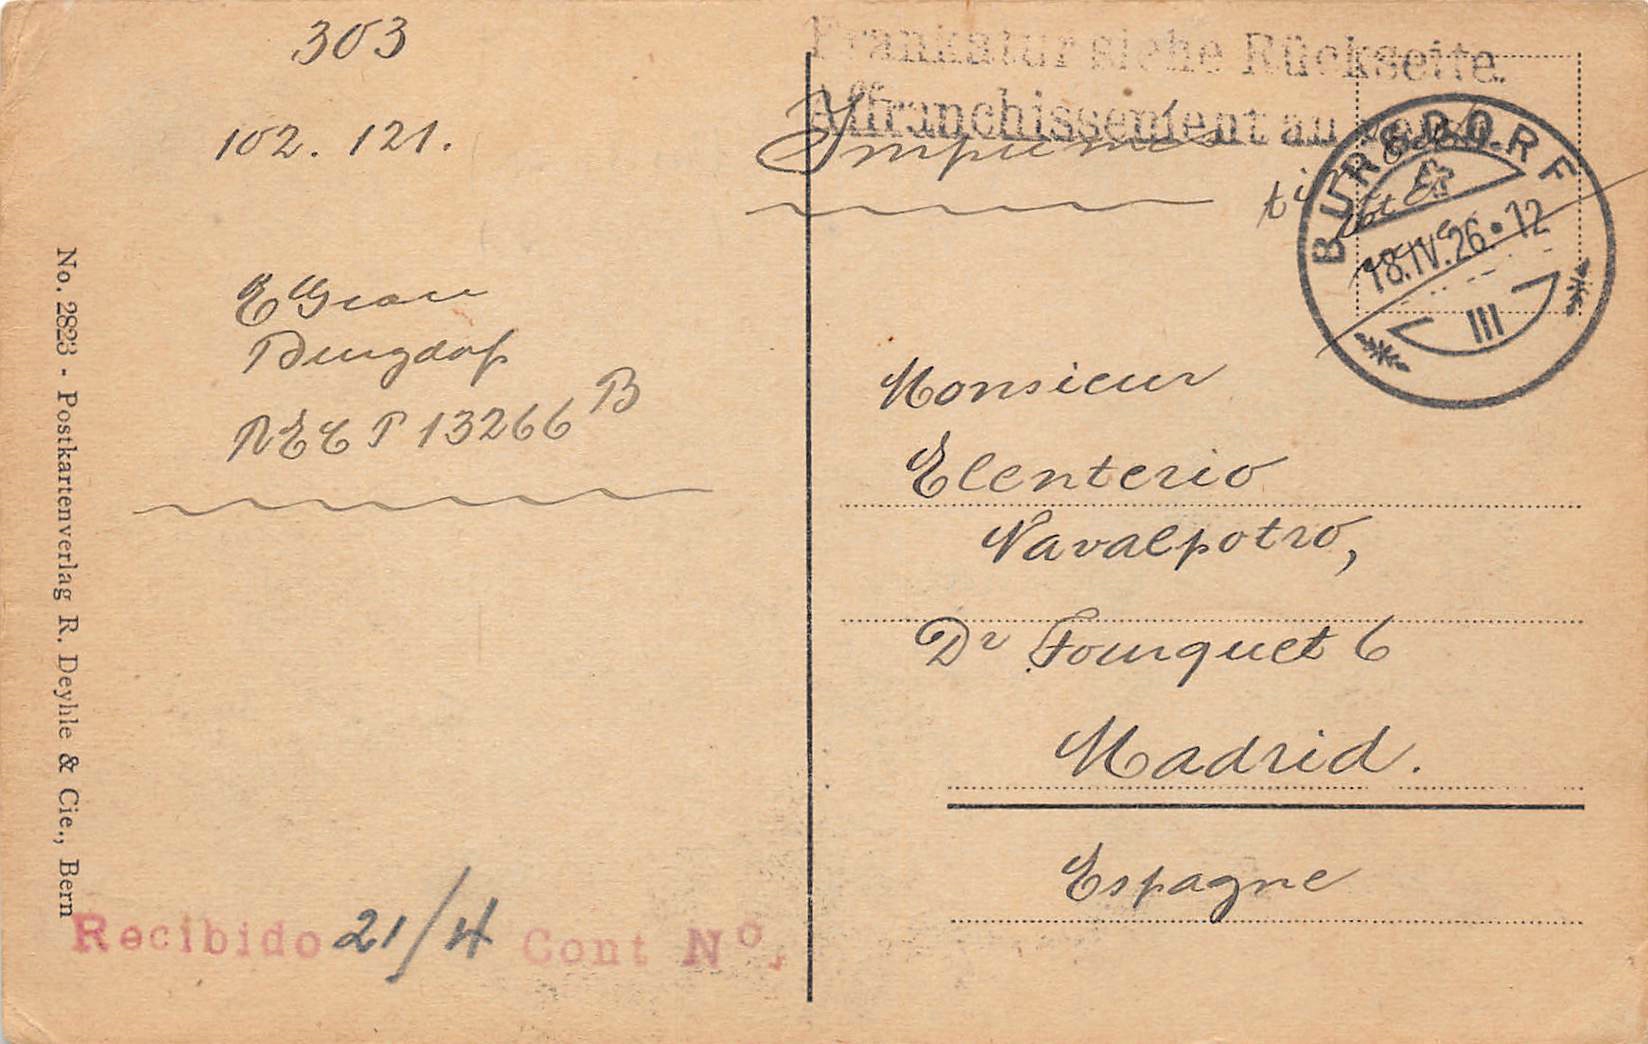 303
102. 121.
E Grau
Burgdorf
13266 B
No. 2823 - Postkartenverlag R. Deyhle & Cie., Bern
Recibido 21/4 Cont Nº,
Frankatur siehe Rückseite.
Affranchissement au
Imprimés
BURGDORF
18.IV.26.12
III
Monsieur
Elenterio
Navalpotro,
Dr Fourquet 6
Madrid.
Espagne